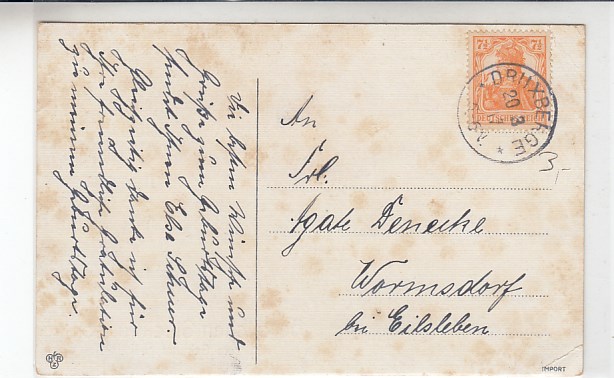 Die besten Wünsche und
Grüße zum Geburtstage
sendet Ihnen Else
Gleichzeitig danke ich für
Ihre freundliche Gratulation
zu meinem Geburtstage.
An
Frl.
Agate Denecke
Wormsdorf
bei Eilsleben
7½ 7½
DEUTSCHES REICH
* DRUXBERGE *
20 3
3,-
IMPORT